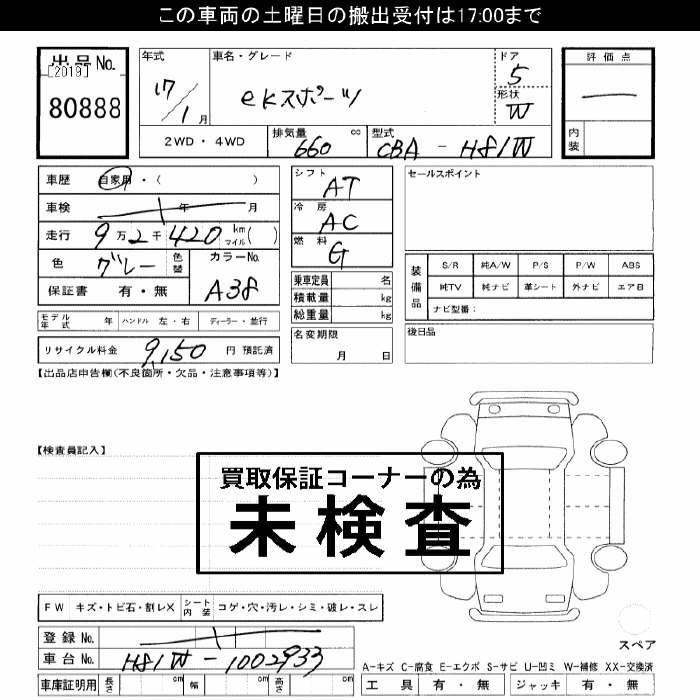 この車両の土曜日の搬出受付は17:00まで
出品No.
[2019]
80888
年式
17/1月
車名・グレード
eKスポーツ
ドア
5
形状
W
評価点
—
内装
2WD・4WD
排気量
660 cc
型式
CBA - H81W
車歴 自家用・( )
車検 年 月
走行 9万2千420 km マイル( )
色 グレー 色替
カラーNo.
A38
保証書 有・無
モデル年式 年 ハンドル 左・右 ディーラー・並行
リサイクル料金 9,150 円 預託済
シフト
AT
冷房
AC
燃料
G
乗車定員 名
積載量 kg
総重量 kg
名変期限
月 日
セールスポイント
装備品
S/R 純A/W P/S P/W ABS
純TV 純ナビ 革シート 外ナビ エアB
ナビ型番:
後日品
【出品店申告欄(不良箇所・欠品・注意事項等)】
【検査員記入】
買取保証コーナーの為
未検査
FW キズ・トビ石・割レX シート内装 コゲ・穴・汚レ・シミ・破レ・スレ
登録No.
車台No. H81W-1002933
車庫証明用 長さ cm 幅 cm 高さ cm
スペア
A-キズ C-腐食 E-エクボ S-サビ U-凹ミ W-補修 XX-交換済
工具 有・無 ジャッキ 有・無